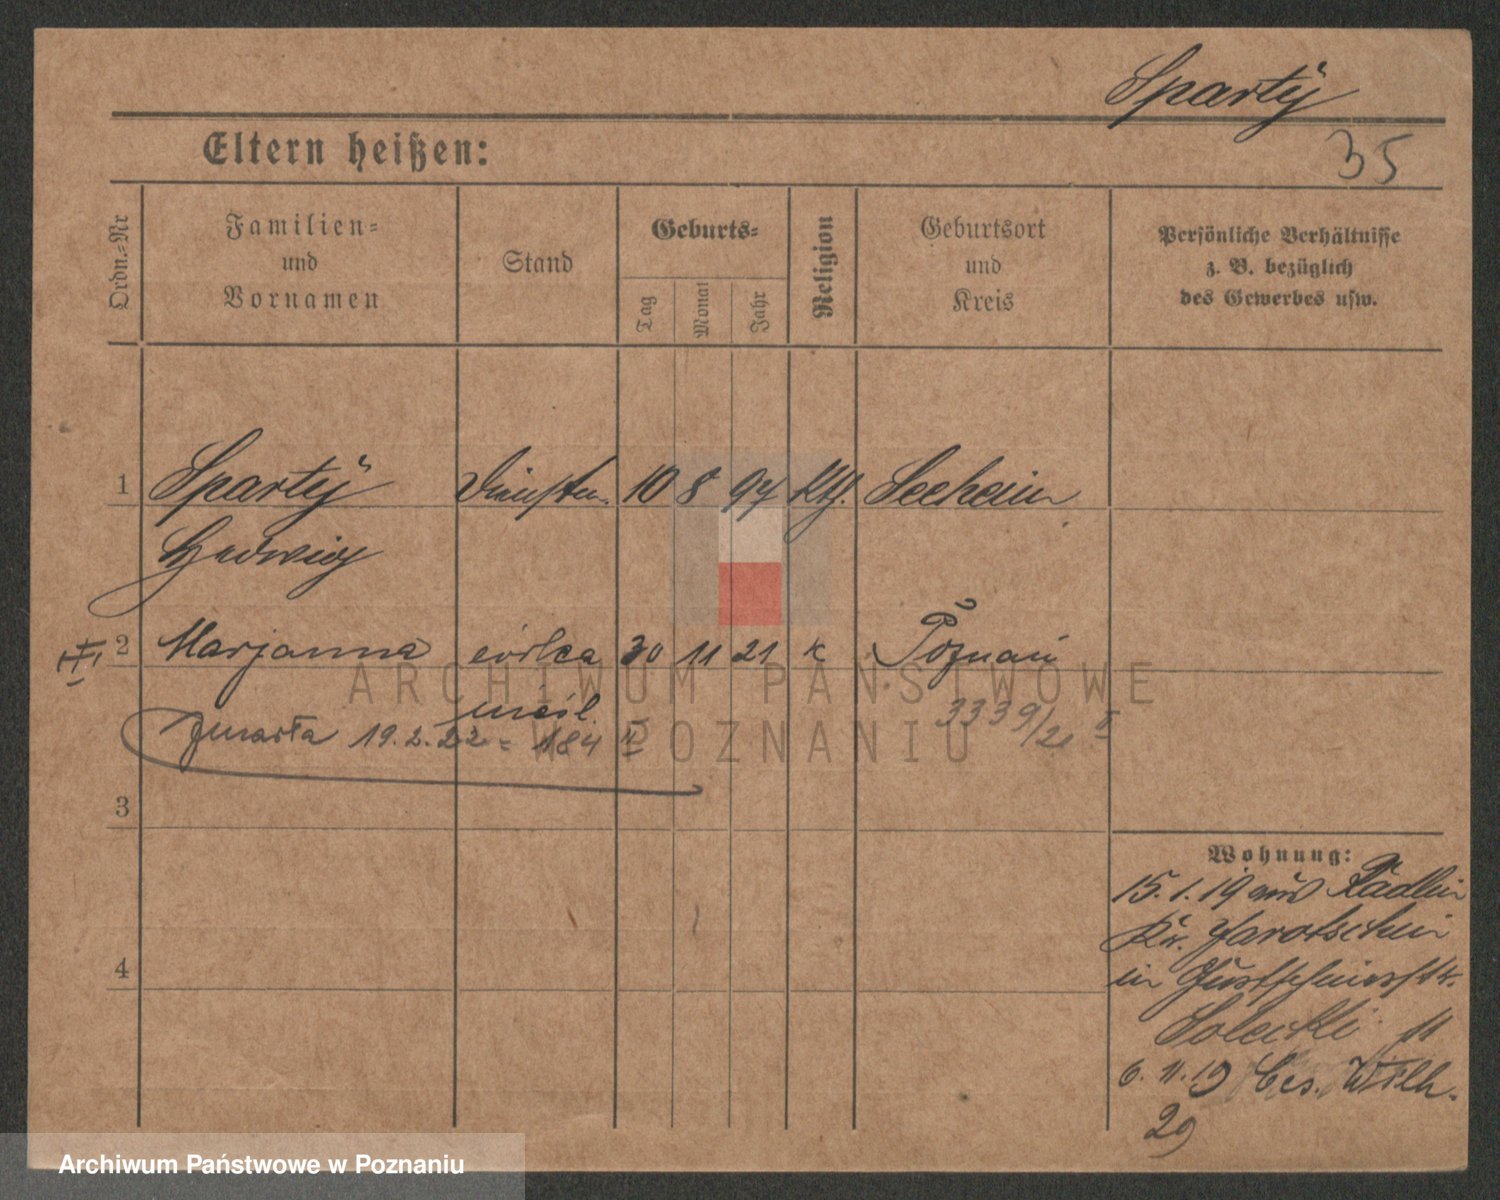 Sparty
35
Eltern heißen:
Ordn.-Nr
Familien-
und
Vornamen
Stand
Geburts-
Tag
Monat
Jahr
Religion
Geburtsort
und
Kreis
Persönliche Verhältnisse
z. B. bezüglich
des Gewerbes usw.
1 Sparty 10 8 97 Kth. Seeheim
Hedwig
III 2 Marjanna córka 30 11 21 k Poznań
nieśl.
zmarła 19.2.22 = 184 II
3339/21 II
3
4
Wohnung:
15.1.19 aus Radlin
Kr. Jarotschin
in
Solecki 11
6.11.19 Ces. Wilh.
29
ARCHIWUM PAŃSTWOWE
W POZNANIU
Archiwum Państwowe w Poznaniu